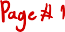 Page # 1